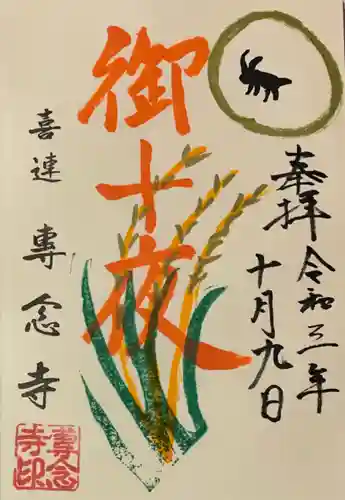 奉拝
令和三年
十月九日
御十夜
喜連 専念寺
専念
寺印